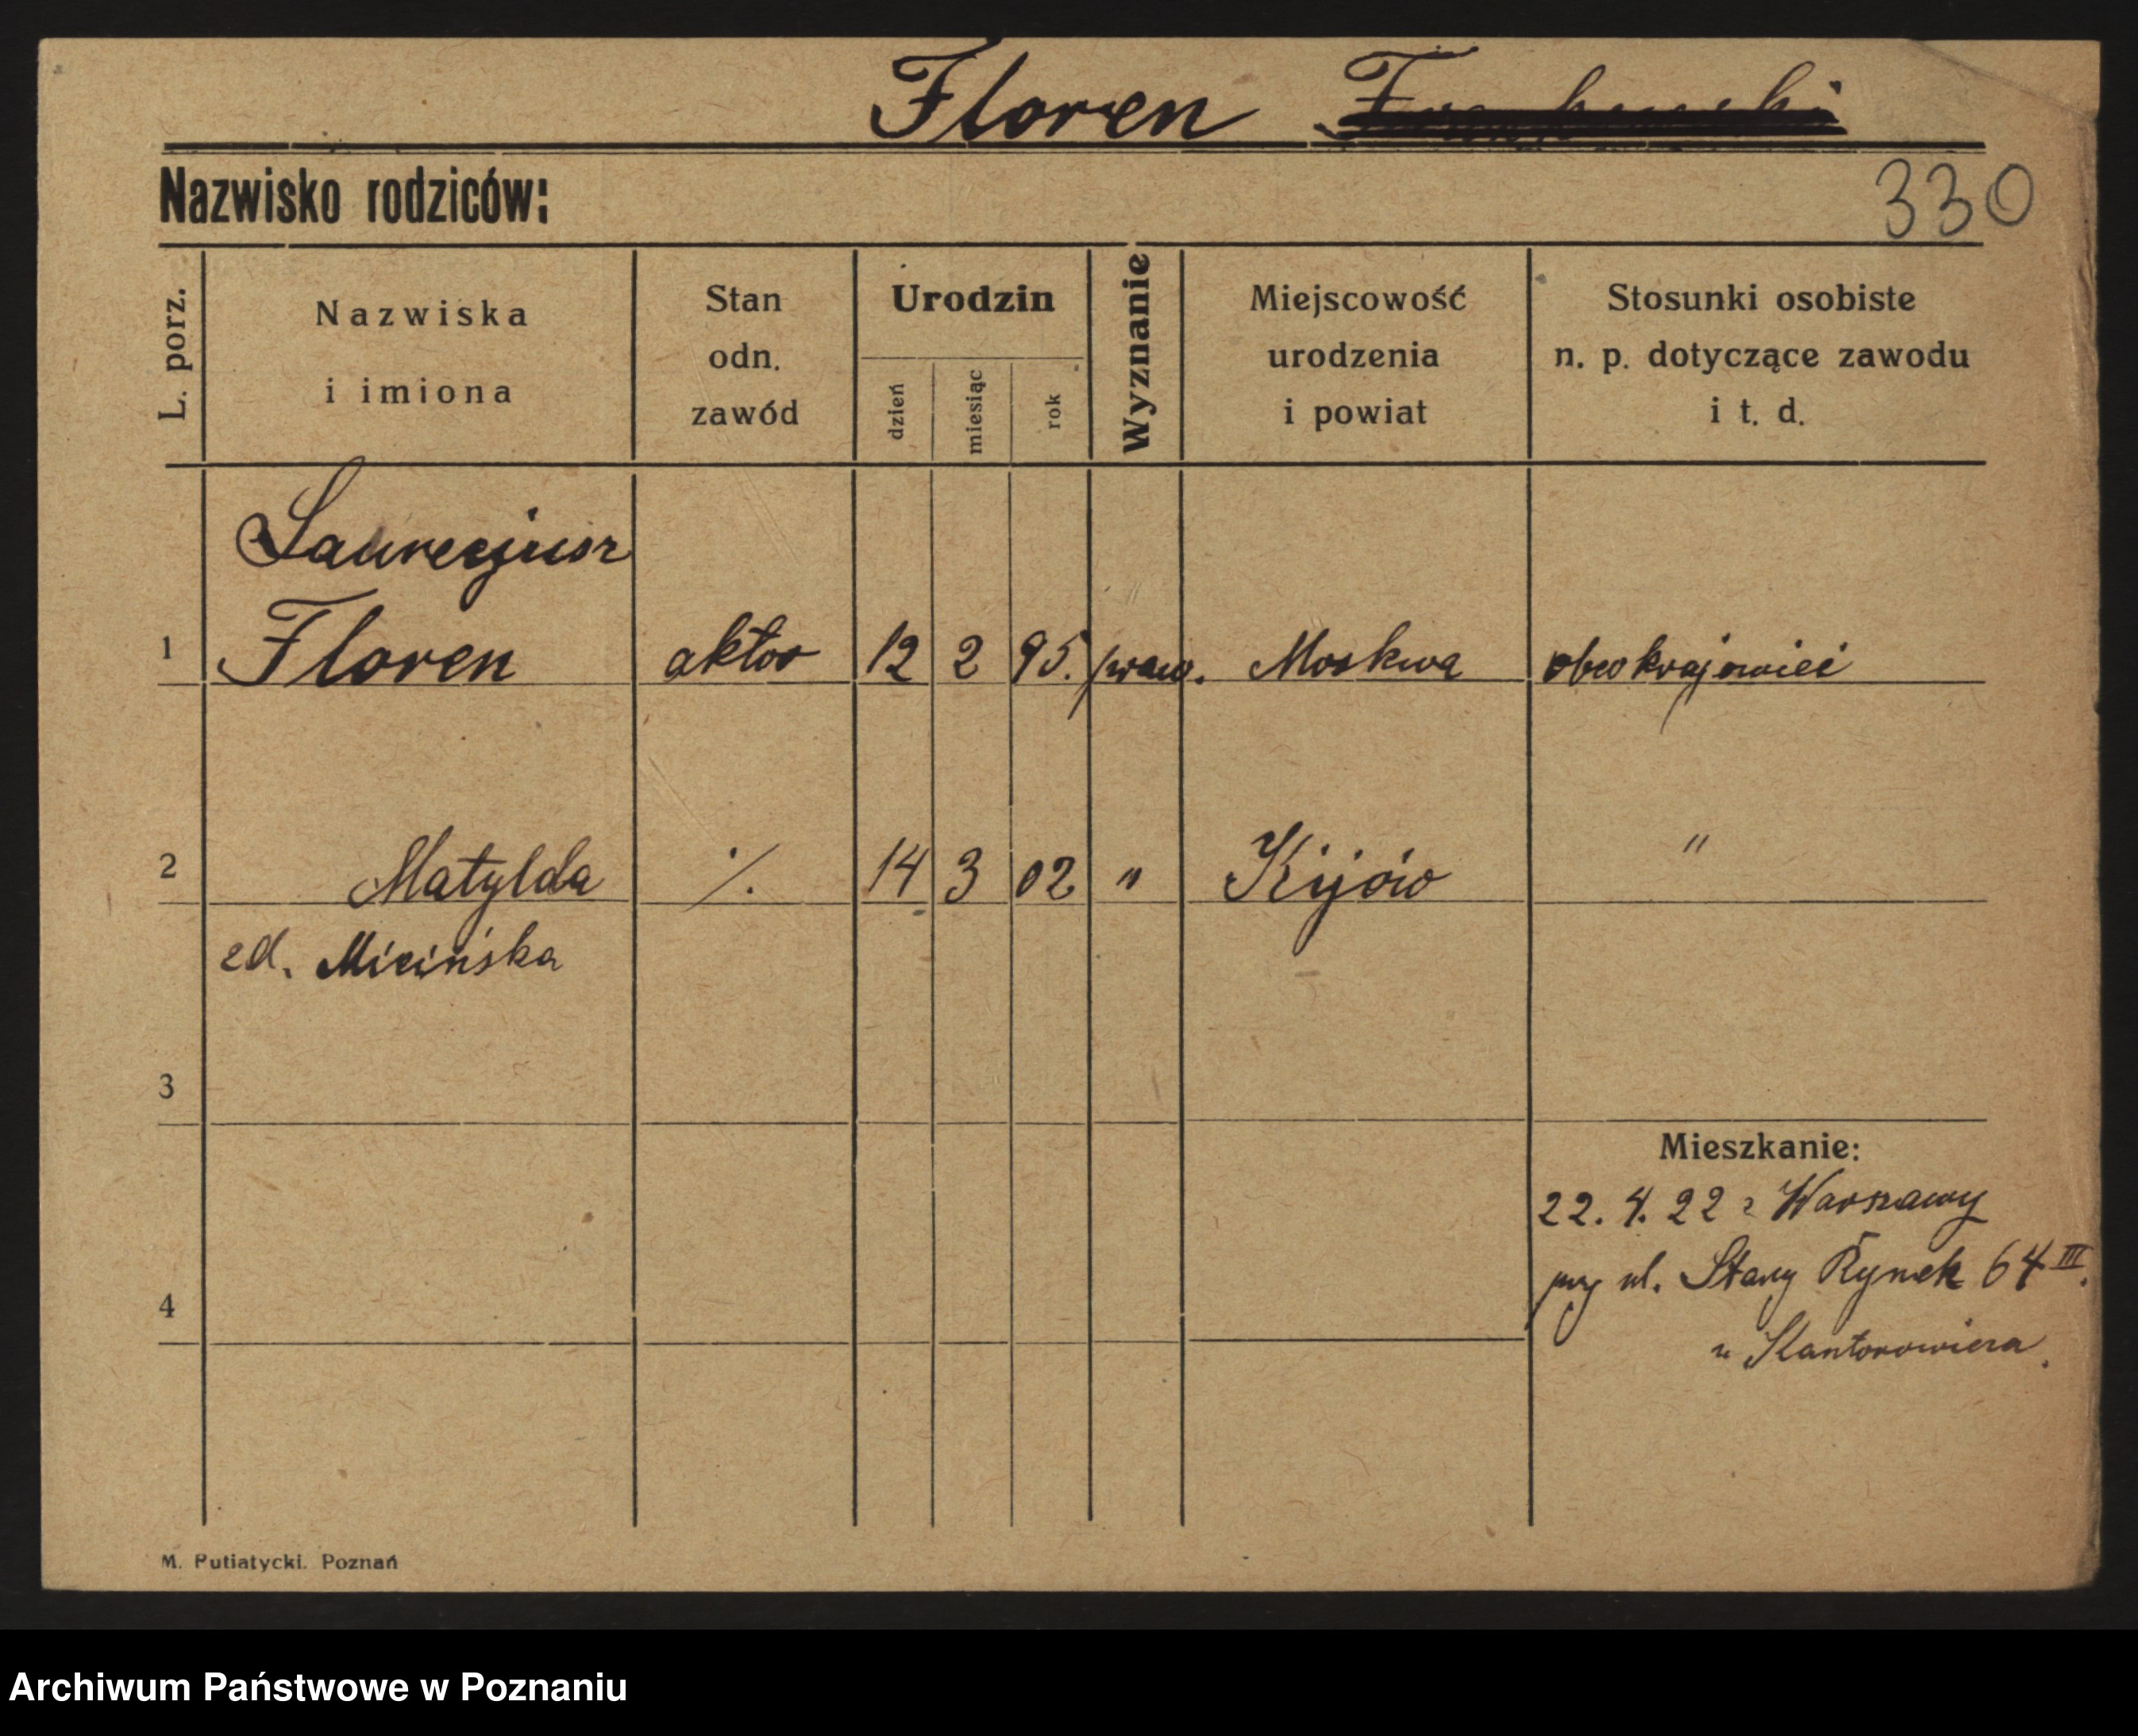 Floren
Nazwisko rodziców:
330
L. porz.
Nazwiska
i imiona
Stan
odn.
zawód
Urodzin
dzień
miesiąc
rok
Wyznanie
Miejscowość
urodzenia
i powiat
Stosunki osobiste
n. p. dotyczące zawodu
i t. d.
1 Floren aktor 12 2 95. praw. Moskwa obcokrajowiec
2 Matylda ./. 14 3 02 " Kijów "
zd. Micińska
3
Mieszkanie:
22. 4. 22 z Warszawy
przy ul. Stary Rynek 64 III.
4
u Kantorowicza.
M. Putiatycki. Poznań
Archiwum Państwowe w Poznaniu